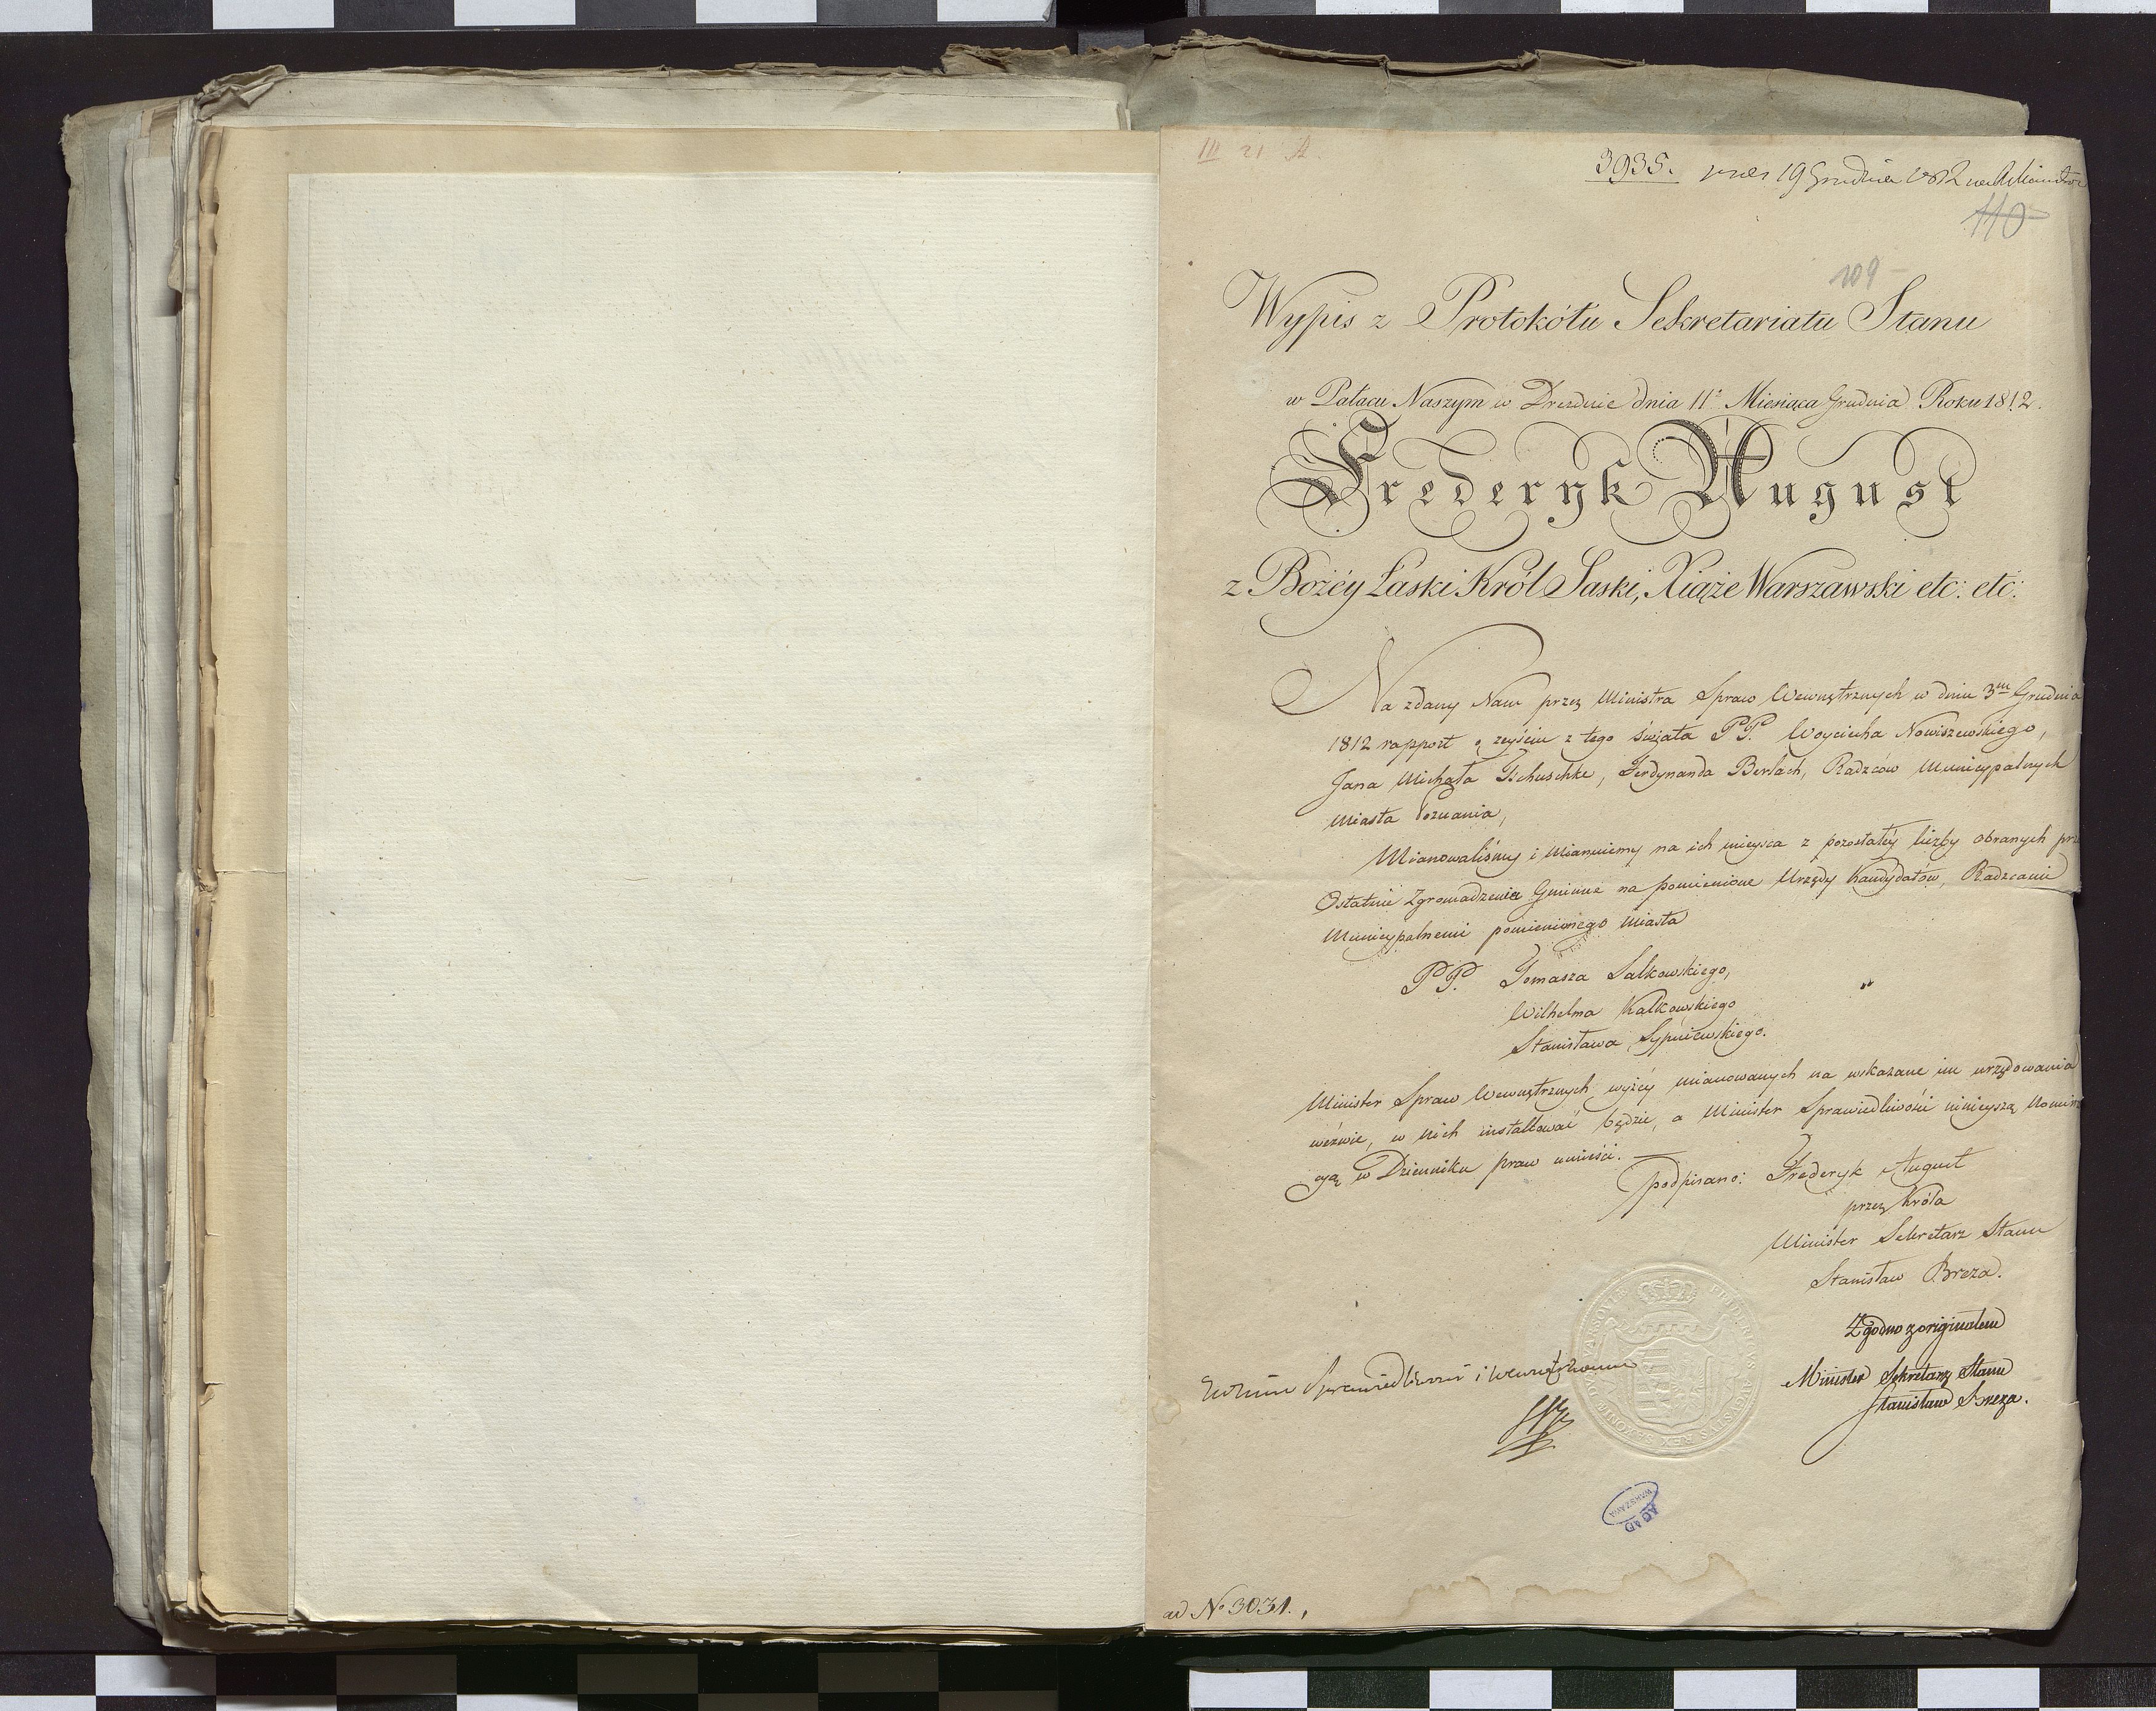 III 21 A.
3935. 19 Grudnia 1812
110
109
Wypis z Protokółu Sekretariatu Stanu
w Pałacu Naszym w Dreznie dnia 11° Miesiąca Grudnia Roku 1812.
Frederyk August
z Bożéy Łaski Król Saski, Xiąże Warszawski etc: etc:
Na zdany Nam przez Ministra Spraw Wewnętrznych w dniu 3m Grudnia
1812 rapport o zeyściu z tego świata PP. Woyciecha Nowiszewskiego,
Jana Michała Tschuschke, Ferdynanda Berlach, Radzców Municypalnych
Miasta Poznania,
Mianowaliśmy i Mianuiemy na ich mieysca z pozostałéy liczby obranych prz
Ostatnie Zgromadzenia Gminne na pomienione Urzędy Kandydatów, Radzcami
Municypalnemi pomienionego Miasta
PP. Tomasza Salkowskiego,
Wilhelma Kalkowskiego
Stanisława Sypniewskiego.
Minister Spraw Wewnętrznych wyżéy mianowanych na wskazane im urzędowania
wezwie, w nich installować będzie, a Minister Sprawiedliwości ninieyszą Nomina
cyą w Dzienniku praw umieści.
podpisano: Frederyk August
przez Króla
Minister Sekretarz Stanu
Stanisław Breza.
Zgodno z originałem
Minister Sekretarz Stanu
Stanisław Breza.
Sprawiedliwości i Wewnętrznemu
FRIDERICVS AVGVSTVS REX SAXONIAE DVX VARSOVIAE
AGAD
WARSZAWA
ad No 3031.